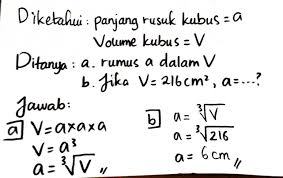 Diketahui : panjang rusuk kubus = a
Volume kubus = V
Ditanya : a. rumus a dalam V
b. Jika V = 216 cm², a = ...?
Jawab:
a V = a x a x a
V = a³
a = ³√V //
b a = ³√V
a = ³√216
a = 6 cm //